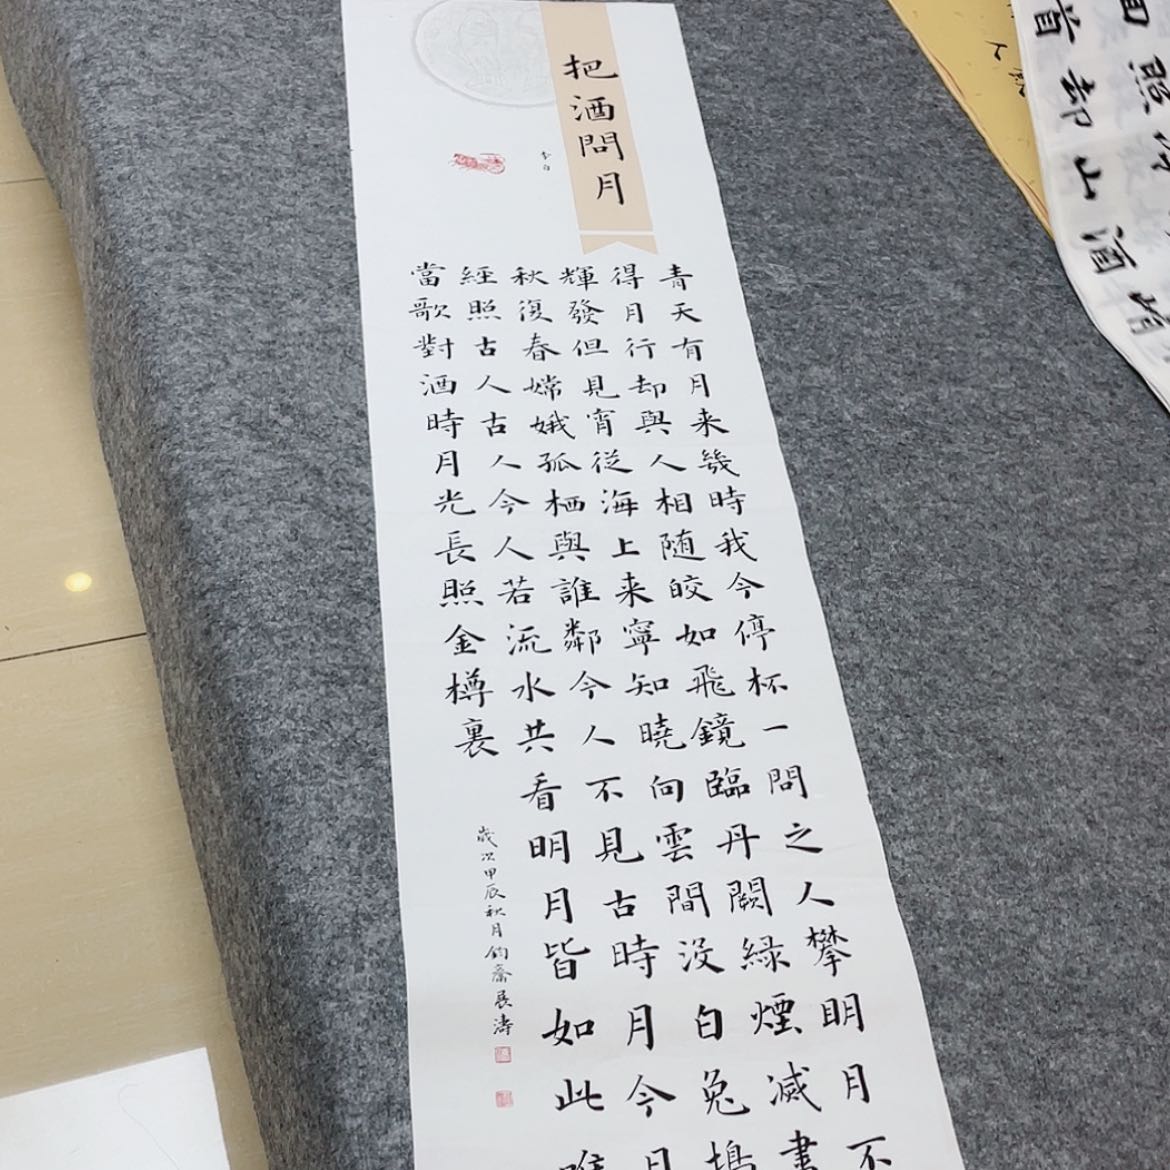 把酒問月
李白
青天有月来幾時我今停杯一問之人攀明月不
得月行却與人相随皎如飛鏡臨丹闕緑煙滅盡
輝發但見宵從海上来寧知曉向雲間没白兔搗
秋復春嫦娥孤栖與誰鄰今人不見古時月今月
經照古人古人今人若流水共看明月皆如此唯
當歌對酒時月光長照金樽裏
歲次甲辰秋月鈞齋展濤
照
首却山酒
人